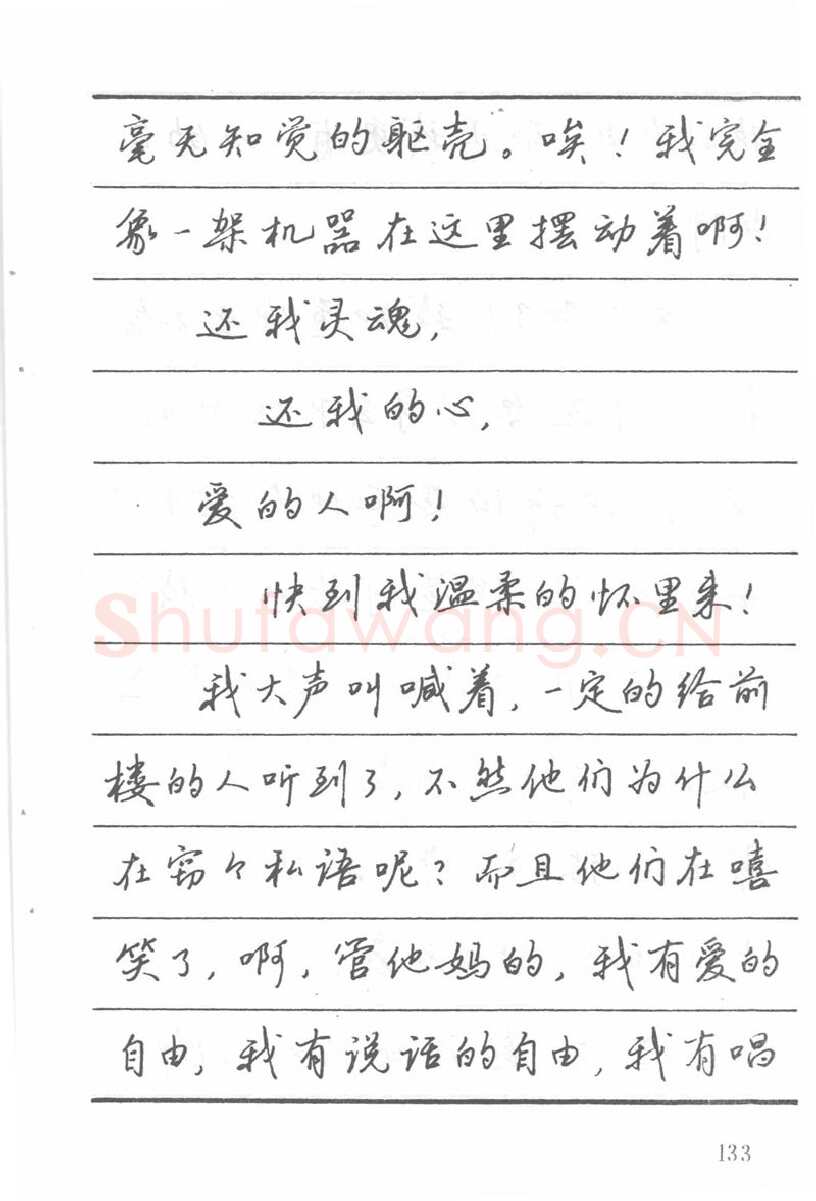 毫无知觉的躯壳。唉！我完全
象一架机器在这里摆动着啊！
还我灵魂，
还我的心，
爱的人啊！
快到我温柔的怀里来！
Shufawang.CN
我大声叫喊着，一定的给前
楼的人听到了，不然他们为什么
在窃々私语呢？而且他们在嘻
笑了，啊，管他妈的，我有爱的
自由，我有说话的自由，我有唱
133